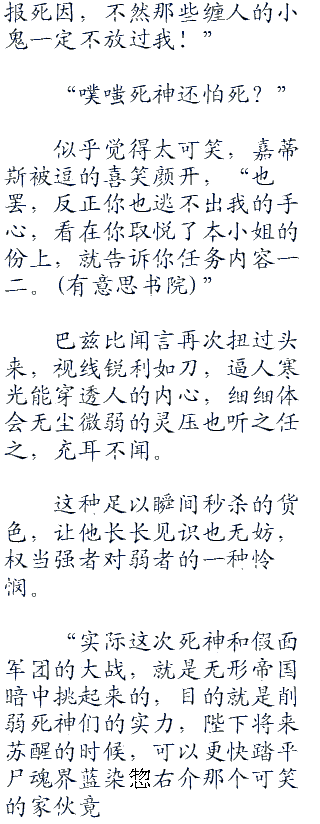 报死因，不然那些缠人的小
鬼一定不放过我！”
“噗嗤死神还怕死？”
似乎觉得太可笑，嘉蒂
斯被逗的喜笑颜开，“也
罢，反正你也逃不出我的手
心，看在你取悦了本小姐的
份上，就告诉你任务内容一
二。(有意思书院)”
巴兹比闻言再次扭过头
来，视线锐利如刀，逼人寒
光能穿透人的内心，细细体
会无尘微弱的灵压也听之任
之，充耳不闻。
这种足以瞬间秒杀的货
色，让他长长见识也无妨，
权当强者对弱者的一种怜
悯。
“实际这次死神和假面
军团的大战，就是无形帝国
暗中挑起来的，目的就是削
弱死神们的实力，陛下将来
苏醒的时候，可以更快踏平
尸魂界蓝染惣右介那个可笑
的家伙竟